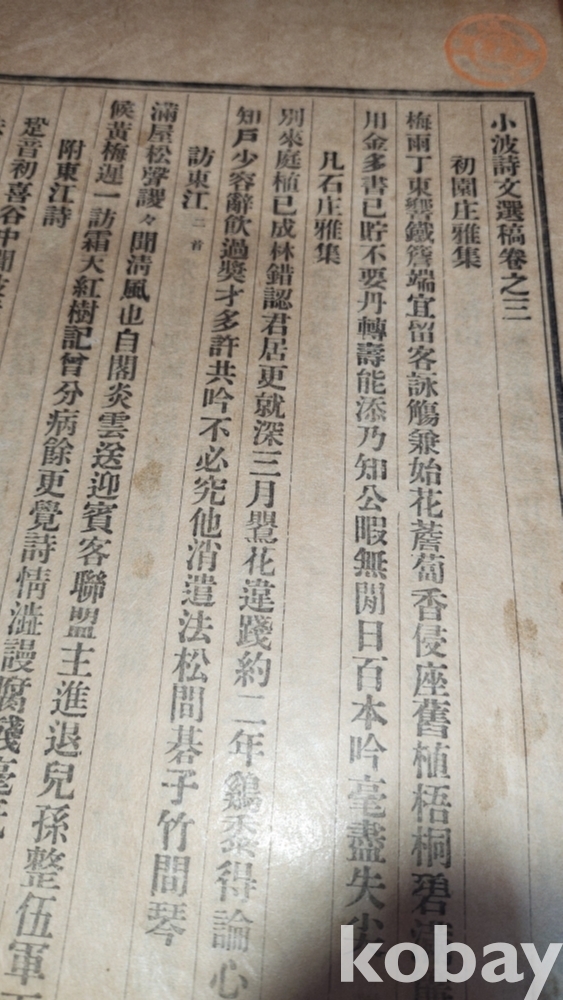 小波詩文選稿卷之三
初園庄雅集
梅雨丁東響鐵簷端宜留客詠觴兼始花薝蔔香侵座舊植梧桐碧
用金多書已貯不要丹轉壽能添乃知公暇無閒日百本吟毫盡失尖
凡石庄雅集
別來庭植已成林錯認君居更就深三月鸎花違踐約二年鷄黍得論心
知戶少容辭飮過奬才多許共吟不必究他消遣法松間碁子竹間琴
訪東江 二首
滿屋松聲謖々聞淸風也自閣炎雲送迎賓客聯盟主進退兒孫整伍軍
候黃梅遲一訪霜天紅樹記曾分病餘更覺詩情澁謾腐殘毫
附東江詩
跫音初喜谷中聞
kobay